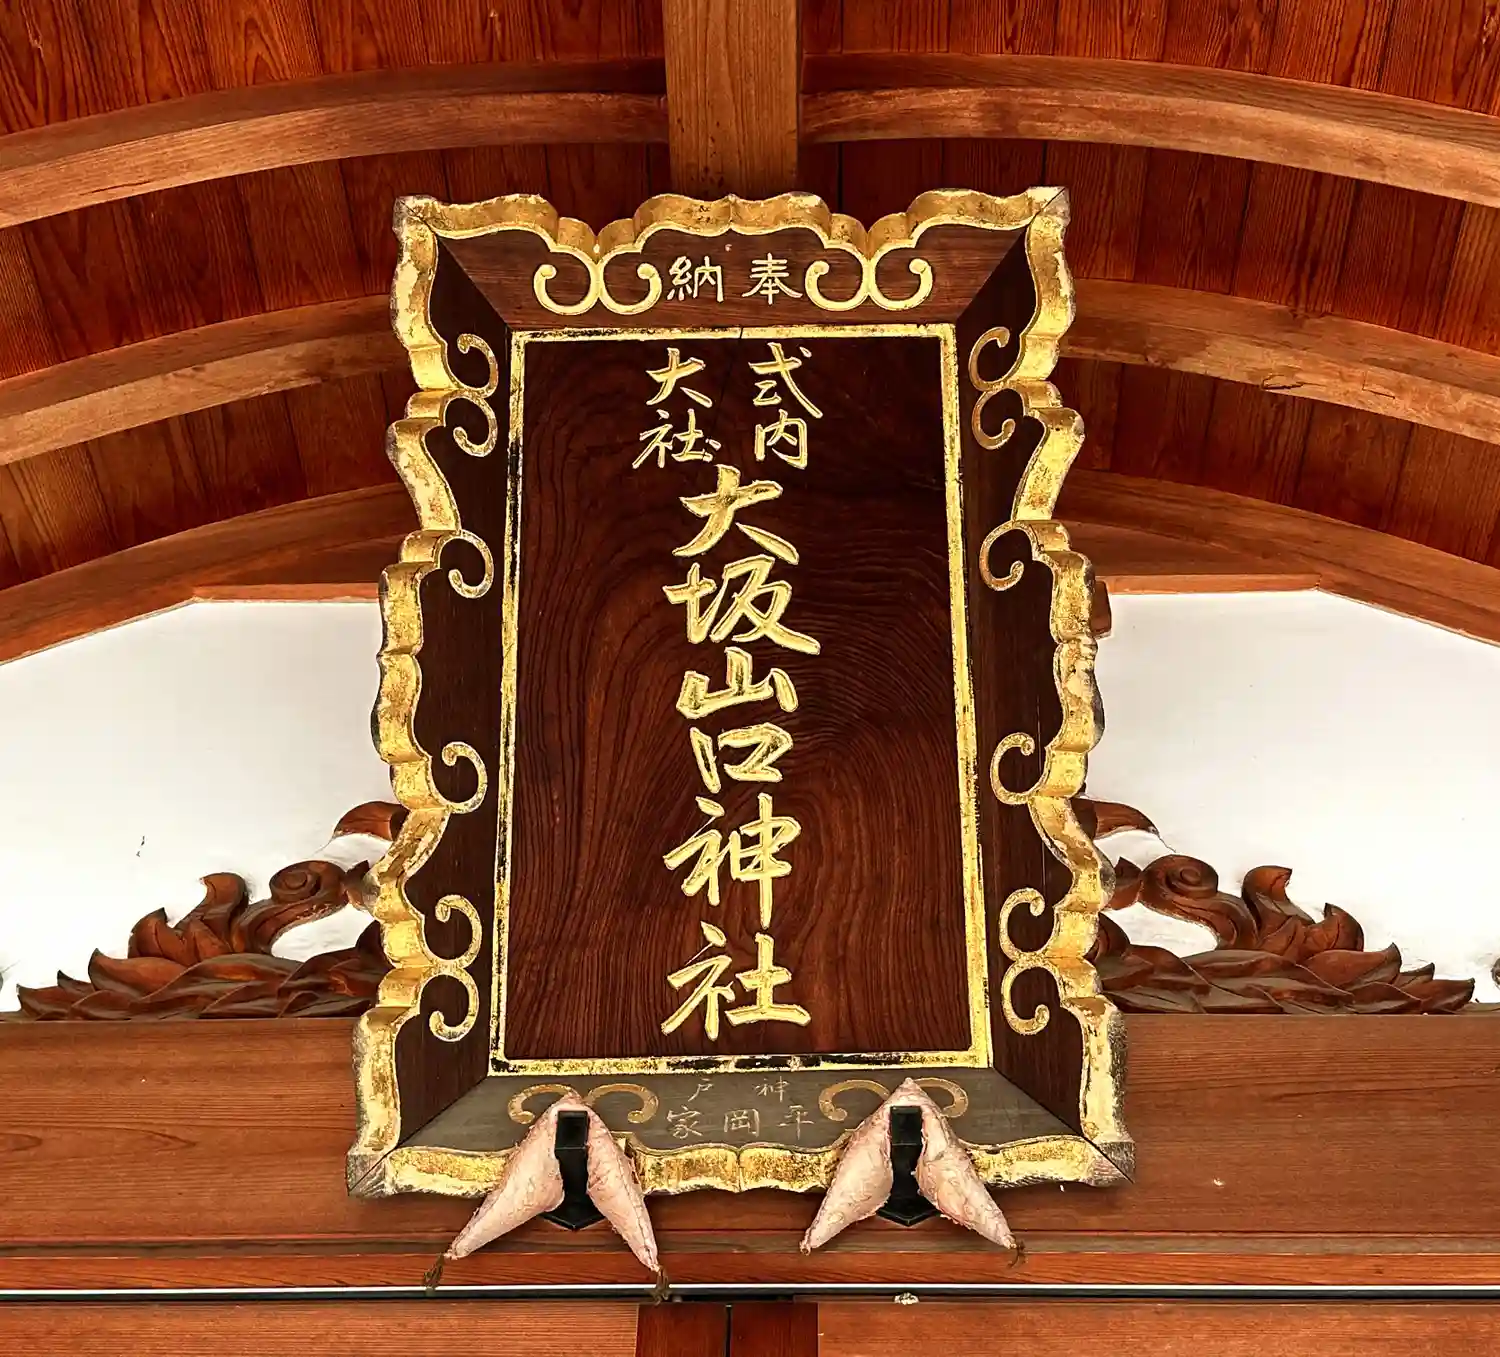 奉納
式内
大社
大坂山口神社
神戸
平岡家